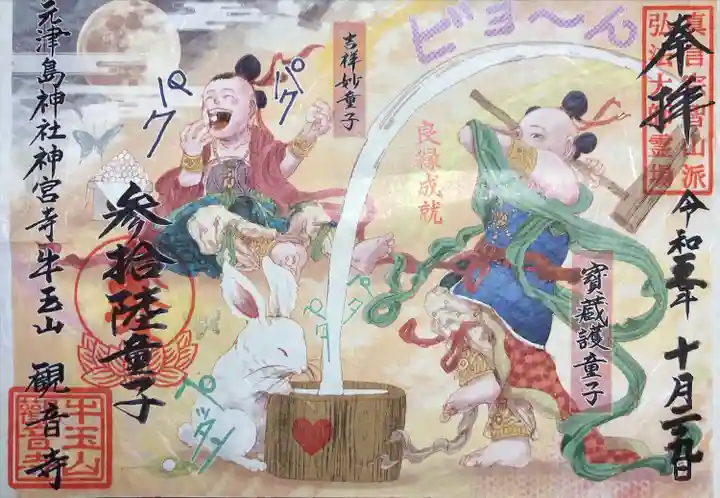 奉拝
真言宗豊山派
弘法大師霊場
令和五年十月二十九日
ビョ〜ん
吉祥妙童子
パク
パク
良縁成就
寳蔵護童子
参拾陸童子
ペタ
ペタ
ペッタン
元津島神社神宮寺牛玉山 観音寺
牛玉山
觀音寺